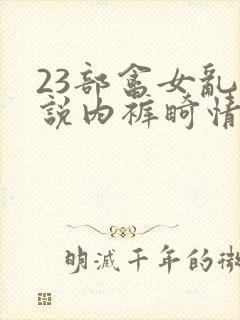 23部畲女乱
說内裤畸情
明滅千年的微